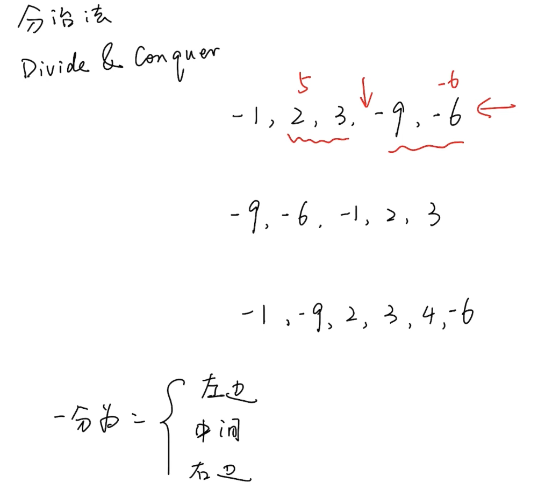 分治法
Divide & Conquer
5 -6
-1, 2, 3, -9, -6
-9, -6, -1, 2, 3
-1, -9, 2, 3, 4, -6
一分为二
左边
中间
右边